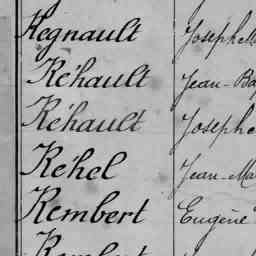 Regnault Joseph M
Réhault Jean-Ba
Réhault Joseph
Réhel Jean-Ma
Rembert Eugène
Rembert